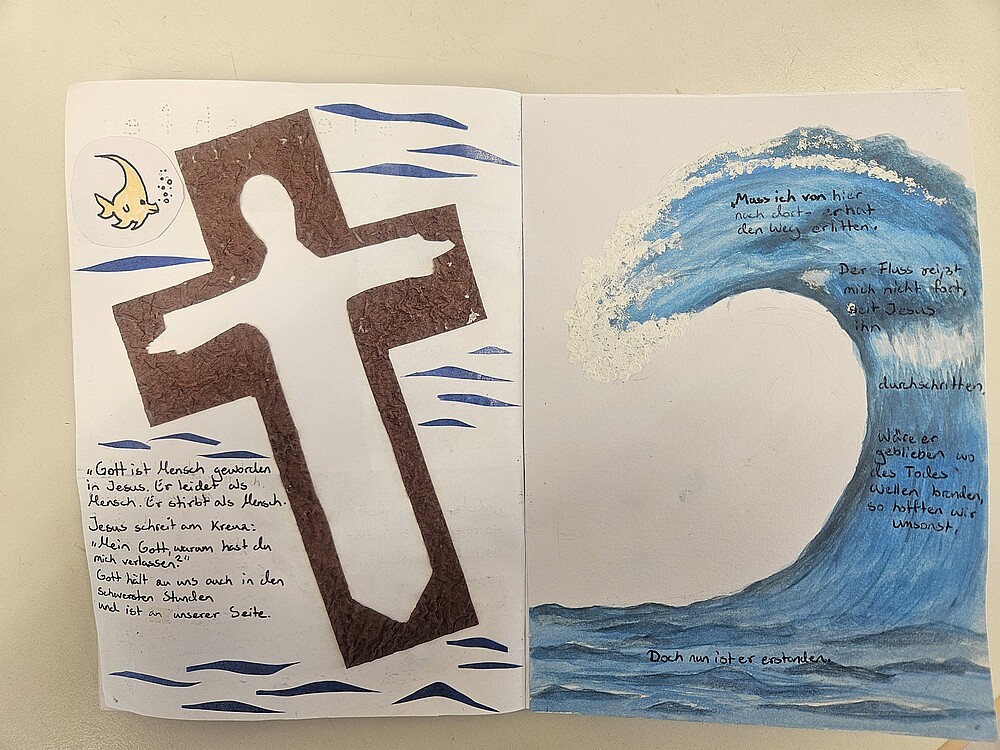 „Gott ist Mensch geworden
in Jesus. Er leidet als
Mensch. Er stirbt als Mensch.
Jesus schreit am Kreuz:
„Mein Gott, warum hast du
mich verlassen?"
Gott hält zu uns auch in den
schwersten Stunden
und ist an unserer Seite.
„Muss ich von hier
nach dort - er hat
den Weg erlitten.
Der Fluss reißt
mich nicht fort,
seit Jesus
ihn
durchschritten,
Wäre er
geblieben wo
des Todes
Wellen branden,
so hofften wir
umsonst.
Doch nun ist er erstanden.